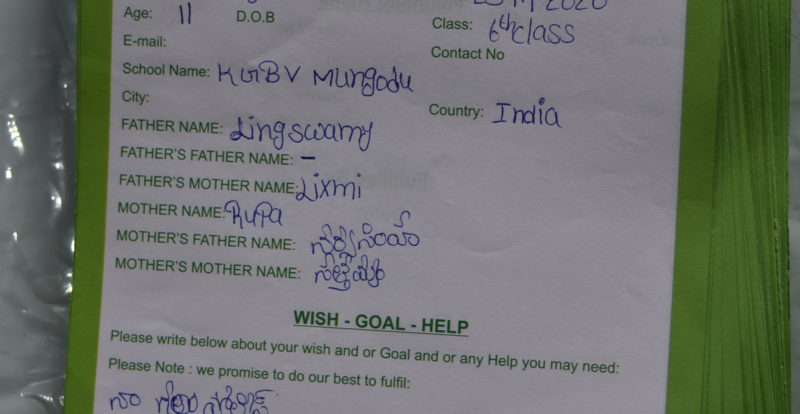 Age: 11 D.O.B
Class: 6th class
E-mail:
Contact No
School Name: KGBV Mungodu
City:
Country: India
FATHER NAME: Lingswamy
FATHER'S FATHER NAME: -
FATHER'S MOTHER NAME: Lixmi
MOTHER NAME: Rupa
MOTHER'S FATHER NAME:
MOTHER'S MOTHER NAME:
WISH - GOAL - HELP
Please write below about your wish and or Goal and or any Help you may need:
Please Note : we promise to do our best to fulfil: